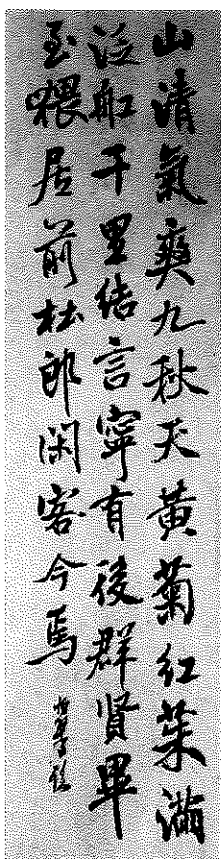 山清氣爽九秋天黃菊紅茱滿
泛舡千里結言寧有後群賢畢
至猥居前杜郎閑客今焉